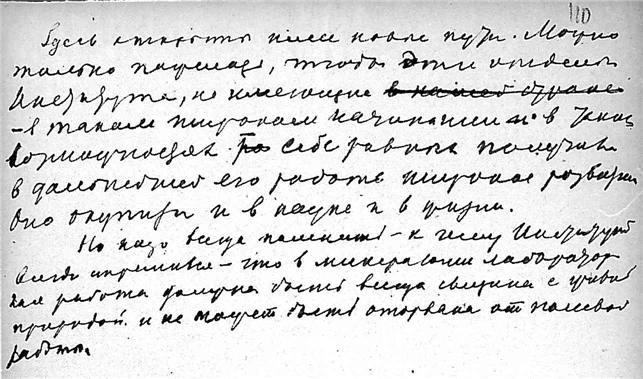 110
Здесь открыты нами новые пути. Можно
только пожелать, чтобы эти отделы
Института, не имеющие в нашей стране
- в таком широком начинании и в таких
себе равных получили
в дальнейшем его работе широкое развитие
Оно окупится и в науке и в жизни.
Но надо всегда помнить - к чему Институт
всегда стремился - что в минералогии лабораторная
работа должна быть всегда связана с живой
природой и не может быть оторвана от полевой
работы.